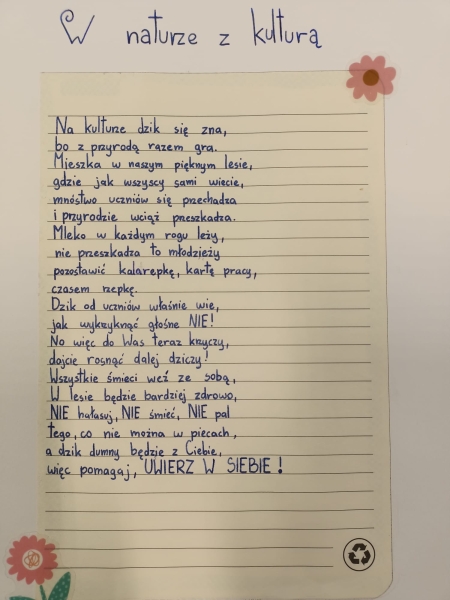 W naturze z kulturą
Na kulturze dzik się zna,
bo z przyrodą razem gra.
Mieszka w naszym pięknym lesie,
gdzie jak wszyscy sami wiecie,
mnóstwo uczniów się przechadza
i przyrodzie wciąż przeszkadza.
Mleko w każdym rogu leży,
nie przeszkadza to młodzieży
pozostawić kalarepkę, kartę pracy,
czasem rzepkę.
Dzik od uczniów właśnie wie,
jak wykrzyknąć głośne NIE!
No więc do Was teraz krzyczy,
dojcie rosnąć dalej dziczy!
Wszystkie śmieci weź ze sobą,
W lesie będzie bardziej zdrowo,
NIE hałasuj, NIE śmieć, NIE pal
tego, co nie można w piecach,
a dzik dumny będzie z Ciebie,
więc pomagaj, UWIERZ W SIEBIE!